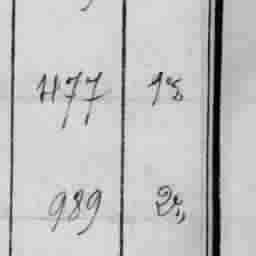 1177 18
989 2